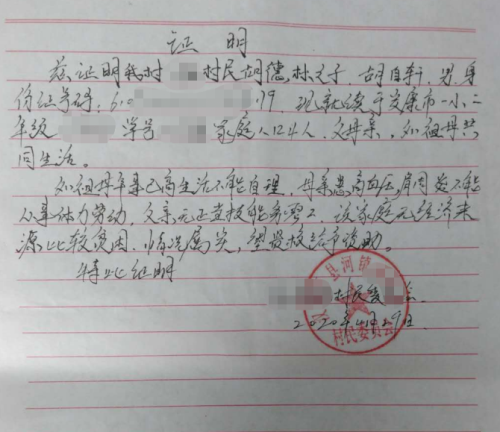 证明
兹证明我村 村民胡德林之子 胡自轩,男,身
份证号码:6 79 现就读于安康市一小二
年级 学号 家庭人口4人,父母亲,如祖母共
同生活。
如祖母年事已高生活不能自理,母亲患高血压肩周炎不能
从事体力劳动,父亲 务零工 该家庭无经济来
源比较贫困,情况属实,望贵校给予资助。
特此证明
村民委 会
2020年4月29日
县河镇
村民委员会